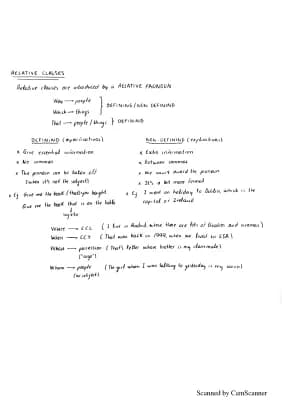 RELATIVE CLAUSES
Relative clauses are introduced by a RELATIVE PRONOUN
Who → people
Which → things
DEFINING/NON DEFINING
That → people/things } DEFINING
DEFINING (specifications)
x Give essential information
x No commas
x The pronoun can be taken off
(when it's not the subject)
x Eg Give me the book (that) you bought.
Give me the book that is on the table
NON-DEFINING (explanations)
x Extra information
x Between commas
x We must the pronoun
x It's a bit more formal
x Eg I went on holiday to Dublin, which is the
capital of Ireland
Where → CCL (I live in Madrid where there are lots of theatres and cinemas)
When → CCT (That was back in 1999, when we lived in USA)
Whose → possession (That's Peter whose brother is my classmate)
Whom → people (The girl whom I was talking to yesterday is my cousin)
Scanned by CamScanner